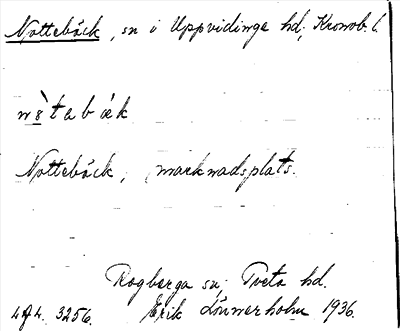 Nottebäck, sn i Uppvidinge hd, Kronob. l.
nòtabæk
Nottebäck, marknadsplats.
Rogberga sn, Tveta hd.
3256. Erik Lönnerholm 1936.